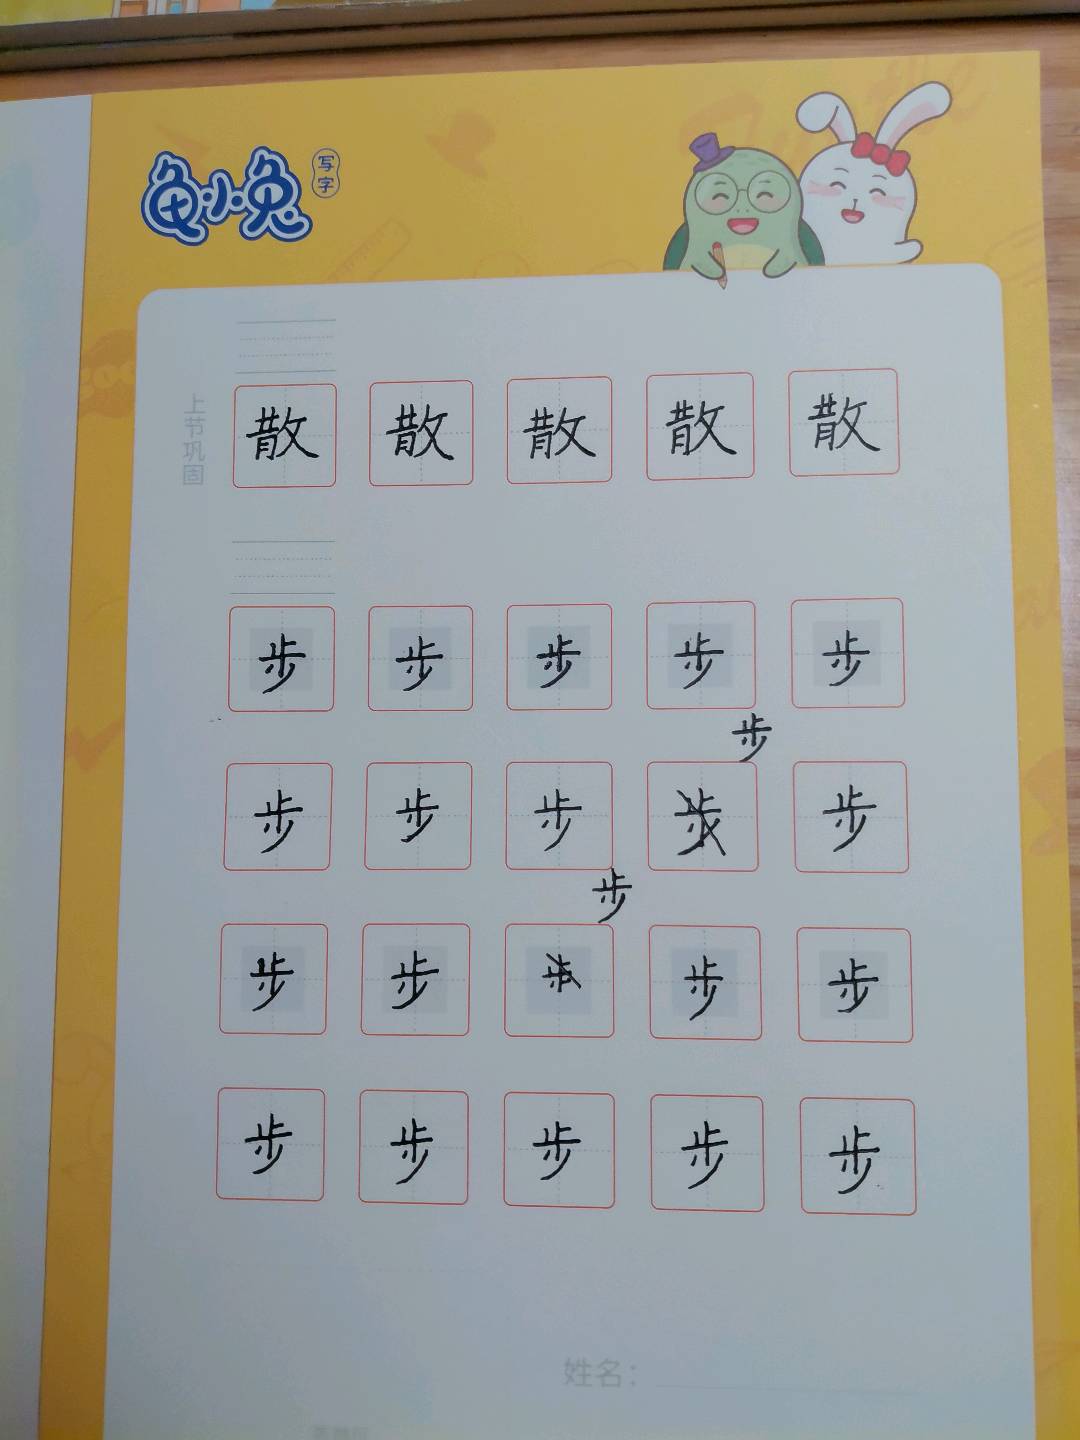 龟小兔
写字
上节巩固
散 散 散 散 散
步 步 步 步 步
步
步 步 步 步 步
步
步 步 步 步 步
步 步 步 步 步
姓名：